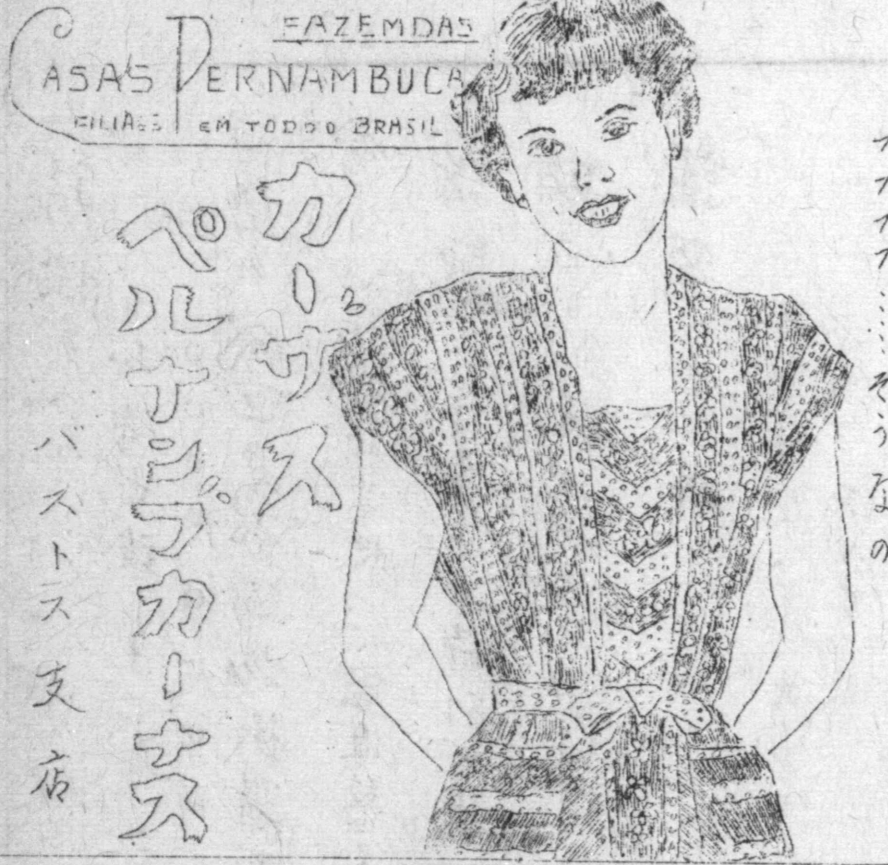 FAZEMDAS
CASAS PERNAMBUCA
FILIAES EM TODO O BRASIL
カーザス
ペルナンブカーナス
バストス支店
そうなの